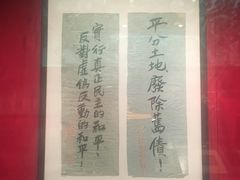 平分土地廢除舊債！
實行真正民主的和平！
反對虛偽反動的和平！